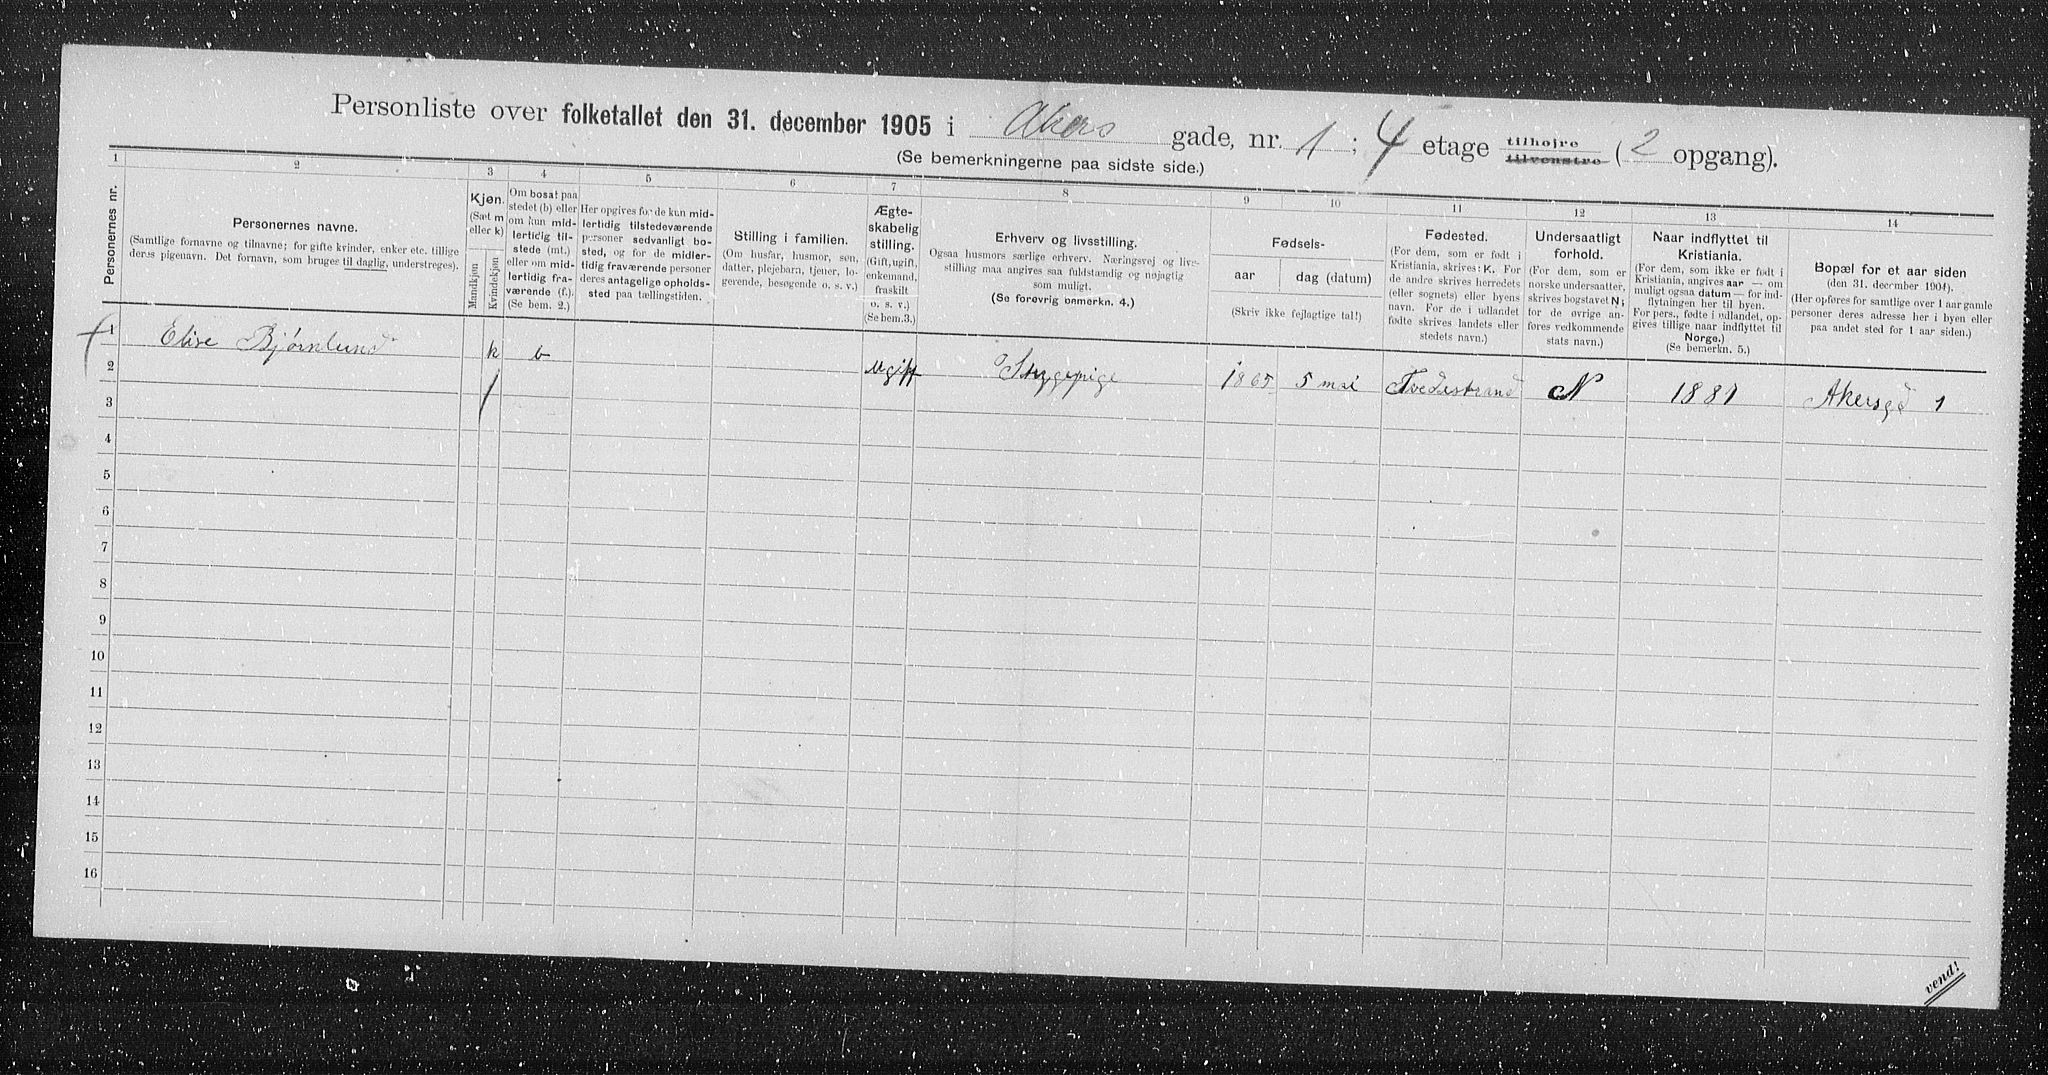 Personliste over folketallet den 31. december 1905 i Akers gade, nr. 1 ; 4 etage tilhøjre tilvenstre ( 2 opgang).
(Se bemerkningerne paa sidste side.)
1 2 3 4 5 6 7 8 9 10 11 12 13 14
Personernes nr.
Personernes navne.
(Samtlige fornavne og tilnavne; for gifte kvinder, enker etc. tillige
deres pigenavn. Det fornavn, som bruges til daglig, understreges).
Kjøn.
(Sæt m
eller k)
Mandkjøn
Kvindekjøn
Om bosat paa
stedet (b) eller
om kun mid-
lertidig til-
stede (mt.)
eller om mid-
lertidig fra-
værende (f.).
(Se bem. 2.)
Her opgives for de kun mid-
lertidig tilstedeværende
personer sedvanligt bo-
sted, og for de midler-
tidig fraværende personer
deres antagelige opholds-
sted paa tællingstiden.
Stilling i familien.
(Om husfar, husmor, søn,
datter, plejebarn, tjener, lo-
gerende, besøgende o. s. v.)
Ægte-
skabelig
stilling.
(Gift, ugift,
enkemand,
fraskilt
o. s. v.)
(Se bem. 3.)
Erhverv og livsstilling.
Ogsaa husmors særlige erhverv. Næringsvej og live-
stilling maa angives saa fuldstændig og nøjagtig
som muligt.
(Se forøvrig bemerkn. 4.)
Fødsels-
aar
dag (datum)
(Skriv ikke fejlagtige tal!)
Fødested.
(For dem, som er født i
Kristiania, skrives: K. For
de andre skrives herredets
(eller sognets) eller byens
navn. For de i udlandet
fødte skrives landets eller
stedets navn.)
Undersaatligt
forhold.
(For dem, som er
norske undersaatter,
skrives bogstavet N;
for de øvrige an-
føres vedkommende
stats navn.)
Naar indflyttet til
Kristiania.
(For dem, som ikke er født i
Kristiania, angives aar — om
muligt ogsaa datum — for ind-
flytningen her til byen.
For pers., fødte i udlandet, op-
gives tillige naar indflyttet til
Norge.)
(Se bemerkn. 5.)
Bopæl for et aar siden
(den 31. december 1904).
(Her opføres for samtlige over 1 aar gamle
personer deres adresse her i byen eller
paa andet sted for 1 aar siden.)
1 Elise Bjørnlund k b ugift Strygepige 1865 5 mai Tvedestrand N 1881 Akersgd 1
2
3
4
5
6
7
8
9
10
11
12
13
14
15
16
vend!